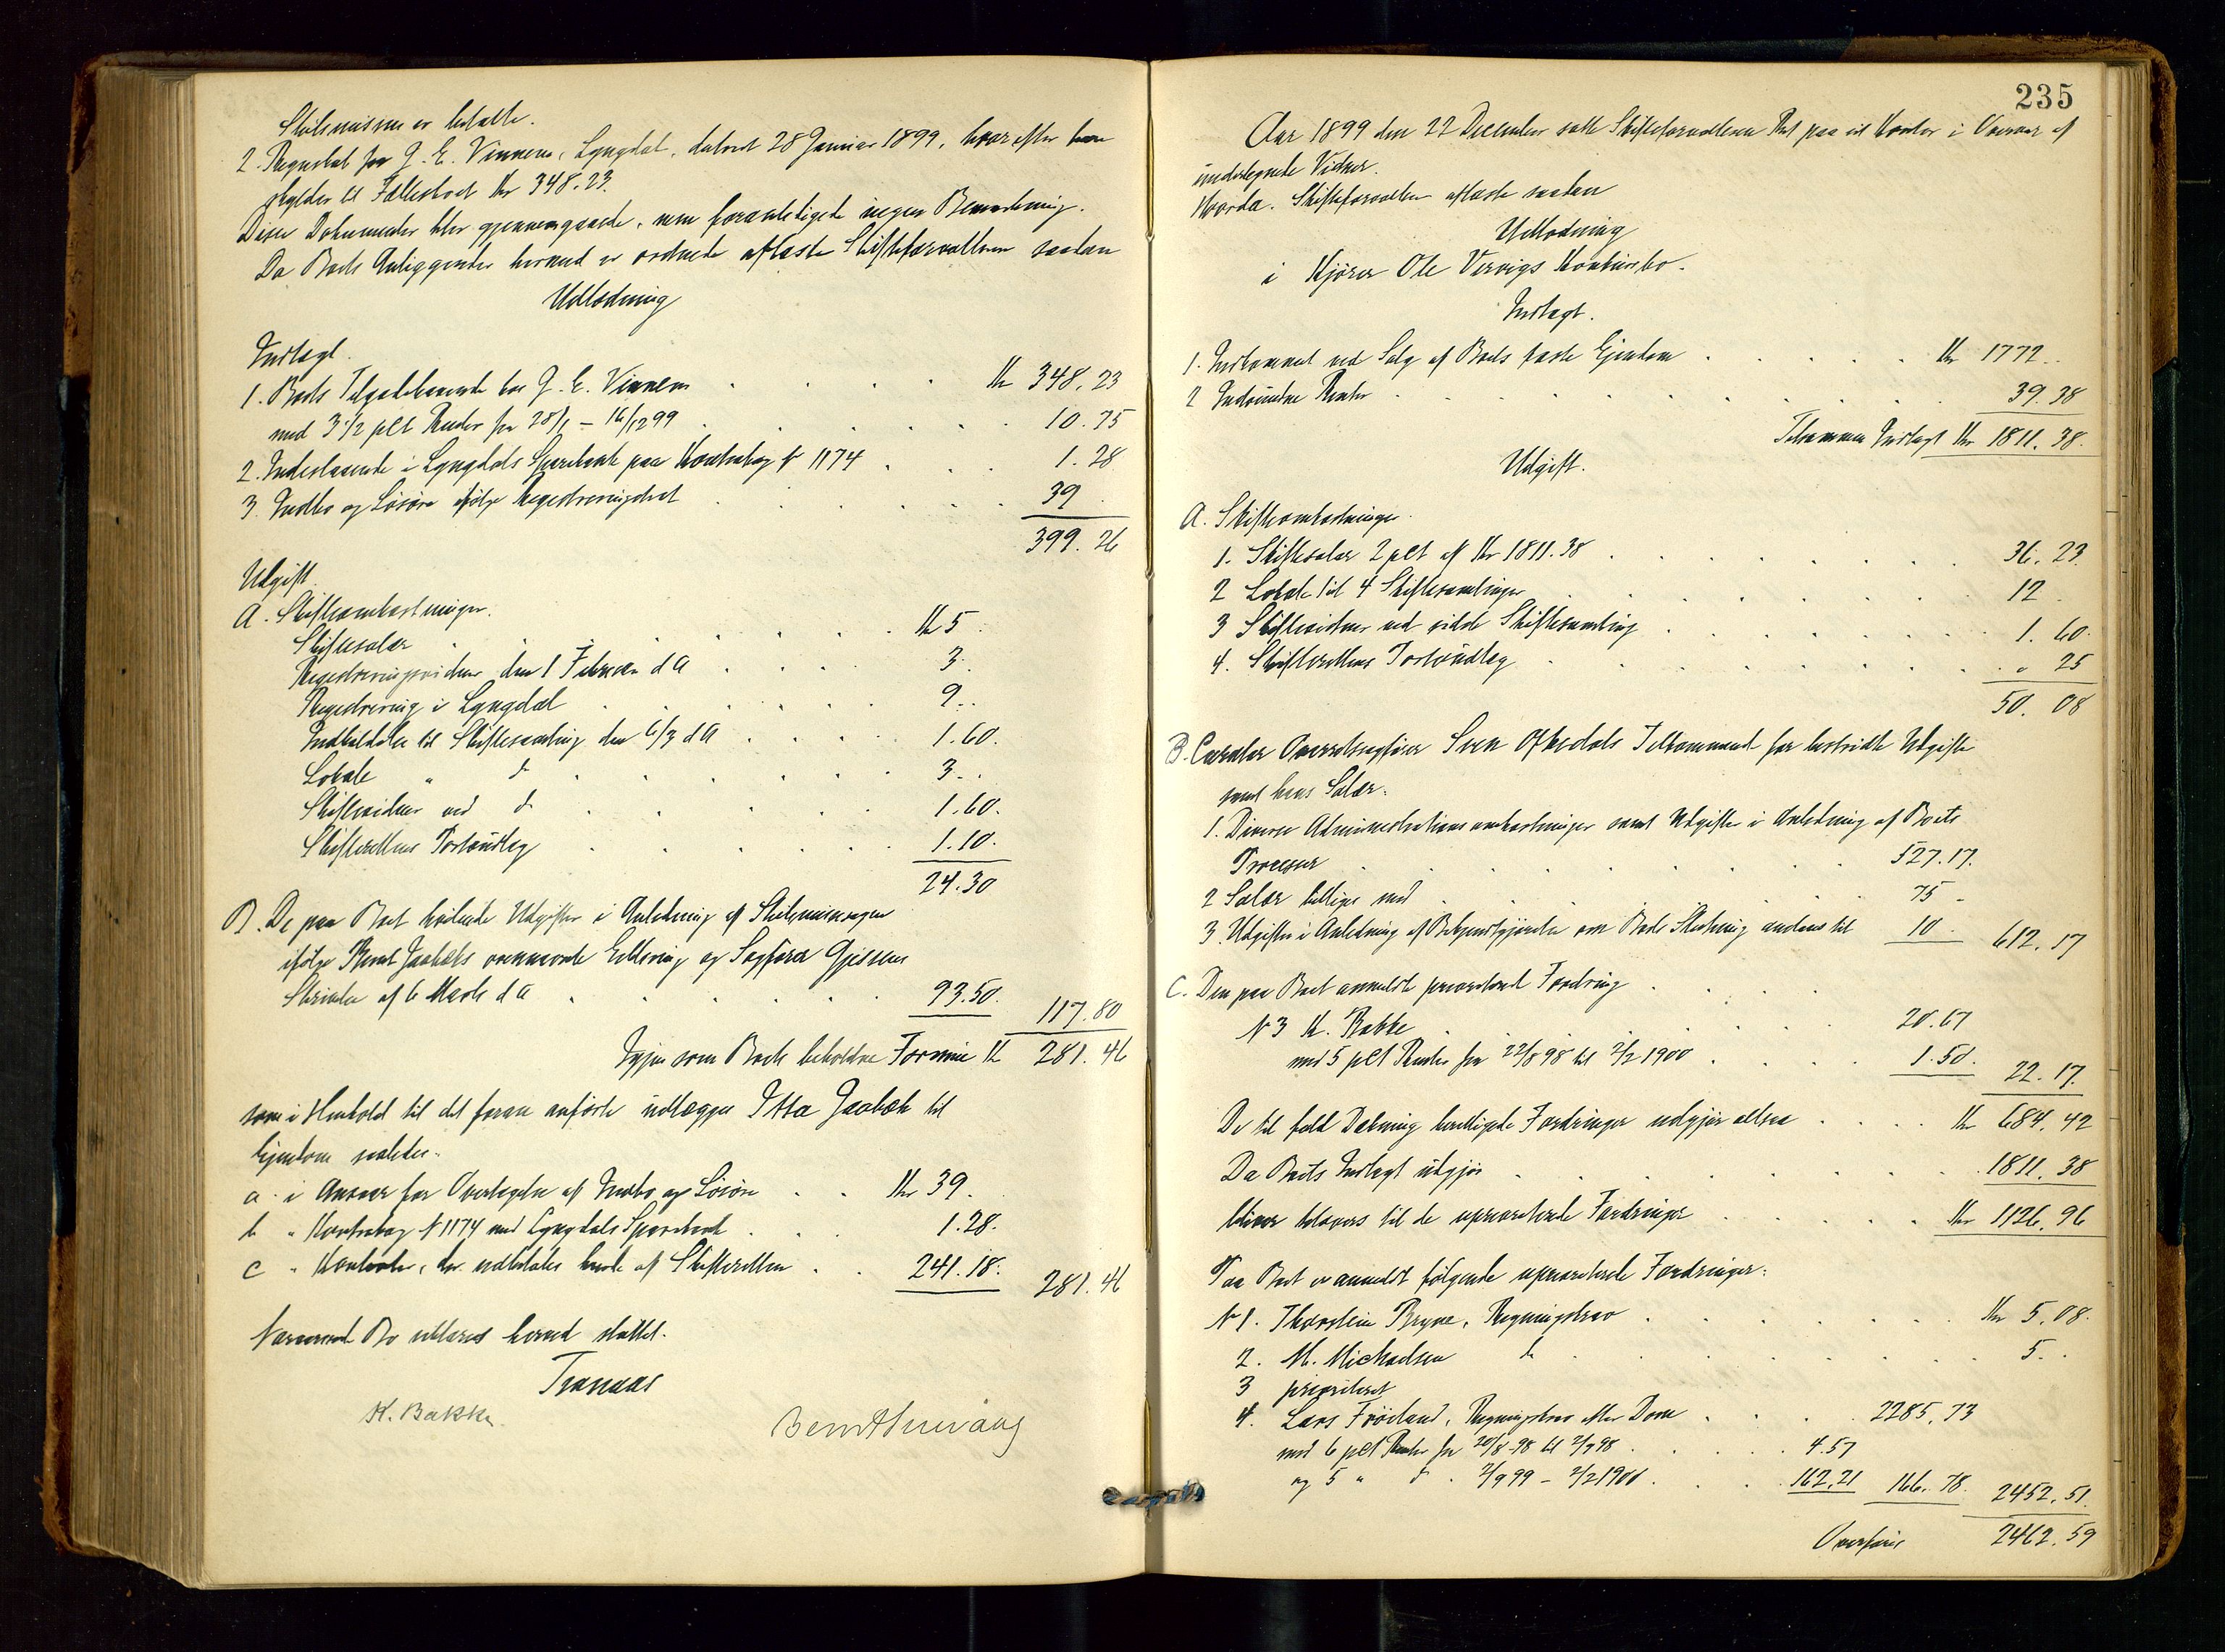 Skilsmissen er betalte.
2. Regnskab fra J. E. Vinnem, Lyngdal, dateret 28 Januar 1899, hvorefter han
skylder til Fællesboet Kr 348.23.
Disse Dokumenter blev gjennemgaaede, men foranledigede ingen Bemærkning.
Da Boets Anliggender hermed er ordnede aflæste Skifteforvalteren saadan
Udlodning
Indtægt.
1. Boets Tilgodehavende hos J. E. Vinnem . . . . Kr 348.23
med 3 1/2 pCt Renter fra 28/1 - 16/12 99 . . . . 10.75
2. Indestaaende i Lyngdals Sparebank paa Kontrabog N 1174 . . . 1.28
3. Indbo og Løsøre ifølge Registreringsforret . . . . 39 .
399.26
Udgift.
A. Skifteomkostninger.
Skiftesalær . . . . Kr 5 .
Registreringsvidner den 1 Februar d A . . . . 3 .
Registrering i Lyngdal . . . . 9 . .
Indkaldelse til Skiftesamling den 6/3 d A . . . 1.60.
Lokale " do . . . . 3 . .
Skiftevidner ved do . . . . 1.60.
Skifterettens Portoudlæg . . . . 1.10.
24.30
B. De paa Boet hvilende Udgifter i Anledning af Skilsmissesagen
ifølge Bernt Jaabæks ovennævnte Erklæring og Sagfører Gjessens
Skrivelse af 6 Marts d A . . . . 93.50. 117.80
Igjen som Boets beholdne Formue Kr 281.46
som i Henhold til det foran anførte udlægges Itta Jaabæk til
Ejendom saaledes:
a. i Ansvar for Overtagelse af Indbo og Løsøre . . Kr 39.
b " Kontrabog N 1174 med Lyngdals Sparebank . . . 1.28.
c " Kontanter, der udbetales hende af Skifteretten . . 241.18. 281.46
Nærværende Bo erklæres hermed sluttet.
Tranaas
K. Bakke
Bernt
235
Aar 1899 den 22 December satte Skifteforvalteren Ret paa sit Kontor i Nærvær af
undertegnede Vidner.
Hvorda. Skifteforvalteren aflæste saadan
Udlodning
i Kjører Ole Vervigs Konkursbo.
Indtægt.
1. Indkommet ved Salg af Boets faste Ejendom . . . . Kr 1772 . .
2 Indvundne Renter . . . . 39.38
Tilsammen Indtægt Kr 1811.38.
Udgift.
A. Skifteomkostninger.
1. Skiftesalær 2 pCt af Kr 1811.38 . . . . 36.23.
2 Lokale til 4 Skiftesamlinger . . . . 12 .
3 Skiftevidner ved sidste Skiftesamling . . . . 1.60.
4. Skifterettens Portoudlæg . . . . " 25
50.08
B. Curator Overretssagfører Sven Oftedals Tilkommende for bestridte Udgifter
samt hans Salær:
1. Diverse Administrationsomkostninger samt Udgifter i Anledning af Boets
Processer . . . . 527.17.
2 Salær billiges med . . . . 75 -
3 Udgifter i Anledning af Bekjendtgjørelse om Bods Slutning ansættes til 10 . 612.17
C. Den paa Boet anmeldte prioriterede Fordring . . . .
N 3 K. Bakke . . . . 20.67
med 5 pCt Renter fra 22/8 98 til 2/2 1900 . . . . 1.50. 22.17.
De til fuld Dækning berettigede Fordringer udgjør altsaa . . . . Kr 684.42
Da Boets Indtægt udgjør . . . . 1811.38
bliver tilovers til de uprioriterede Fordringer . . . . Kr 1126.96
Paa Boet er anmeldt følgende uprioriterede Fordringer:
N 1. Thorstein Bryne, Regningskrav . . . . Kr 5.08.
2. M. Michaelsen do . . . . 5 . .
3 prioriteret
4. Lars Frøiland, Regningskrav efter Dom . . . . 2285.73
med 6 pCt Renter fra 20/8 98 til 2/9 98 . . . . 4.57
og 5 " do . 2/9 99 - 2/2 1900 . . . . 162.21 166.78. 2452.51.
Overføres 2462.59